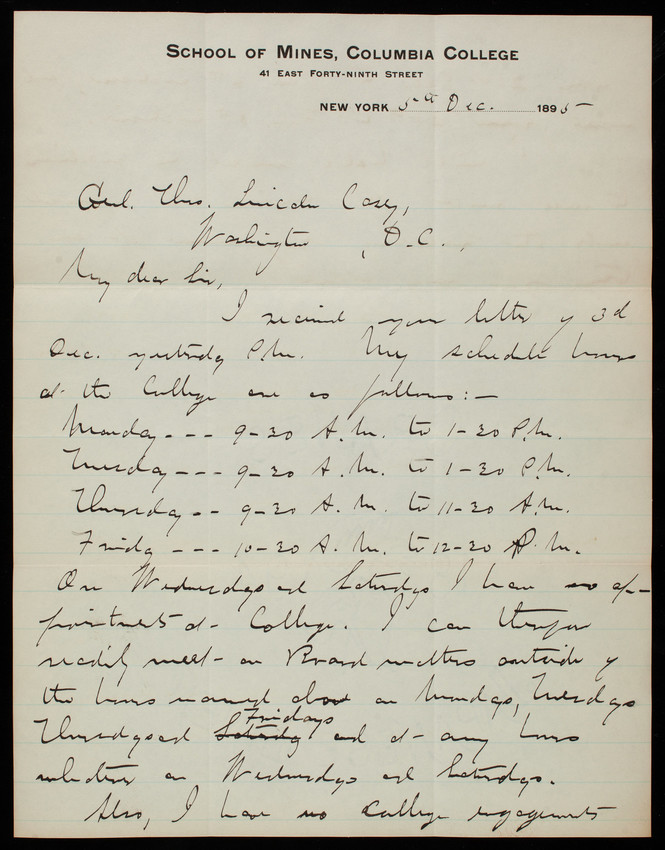 SCHOOL OF MINES, COLUMBIA COLLEGE
41 EAST FORTY-NINTH STREET
NEW YORK 5th Dec. 1895
Genl. Thos. Lincoln Casey,
Washington, D.C.,
My dear Sir,
I received your letter of 3d
Dec. yesterday P.M. My schedule hours
at the College are as follows:—
Monday --- 9-30 A.M. to 1-30 P.M.
Tuesday --- 9-30 A.M. to 1-30 P.M.
Thursday -- 9-30 A.M. to 11-30 A.M.
Friday --- 10-30 A.M. to 12-30 P.M.
On Wednesdays and Saturdays I have no ap-
pointments at College. I can therefore
readily meet on Board matters outside of
the hours named above on Mondays, Tuesdays
Thursdays and Saturday Fridays and at any hours
whatever on Wednesdays and Saturdays.
Also, I have no College engagements